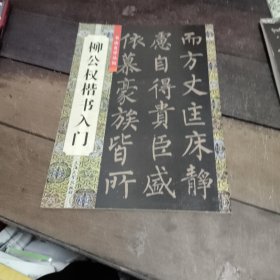 柳公权楷书入门
而方丈匡床静
慮自得貴臣盛
依慕豪族皆所